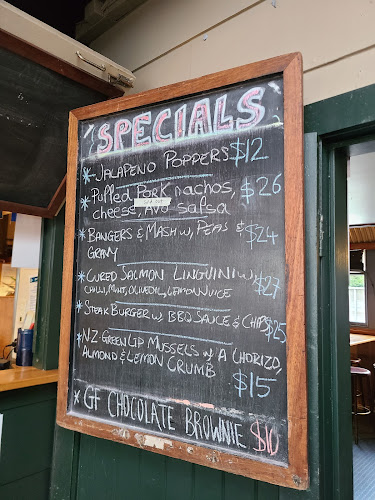 SPECIALS
*-JALAPENO POPPERS $12
* Pulled Pork nachos, $26
cheese, Avo salsa
* BANGERS & MASH w, PEAS & $24
GRAVY
* CURED SALMON LINGUINI w, $27
CHILLI, MINT, OLIVE OIL, LEMON JUICE
* STEAK BURGER w. BBQ SAUCE & CHIPS $25
* NZ GREEN LIP MUSSELS w/ A CHORIZO,
ALMOND & LEMON CRUMB $15
* GF CHOCOLATE BROWNIE $10